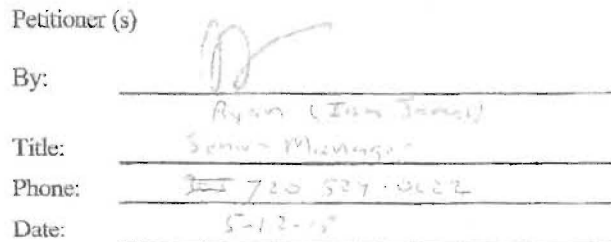 Petitioner (s)
By:
Ryan (
Title: Senior Manager
Phone: 720 529.0622
Date: 5-12-15